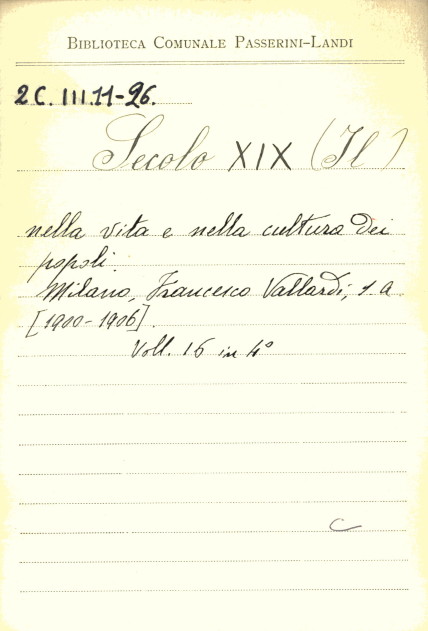 BIBLIOTECA COMUNALE PASSERINI-LANDI
2 C. III.11-26.
Secolo XIX (Il)
nella vita e nella cultura dei
popoli.
Milano, Francesco Vallardi, s.a
[1900-1906].
Voll. 16 in 4°
C